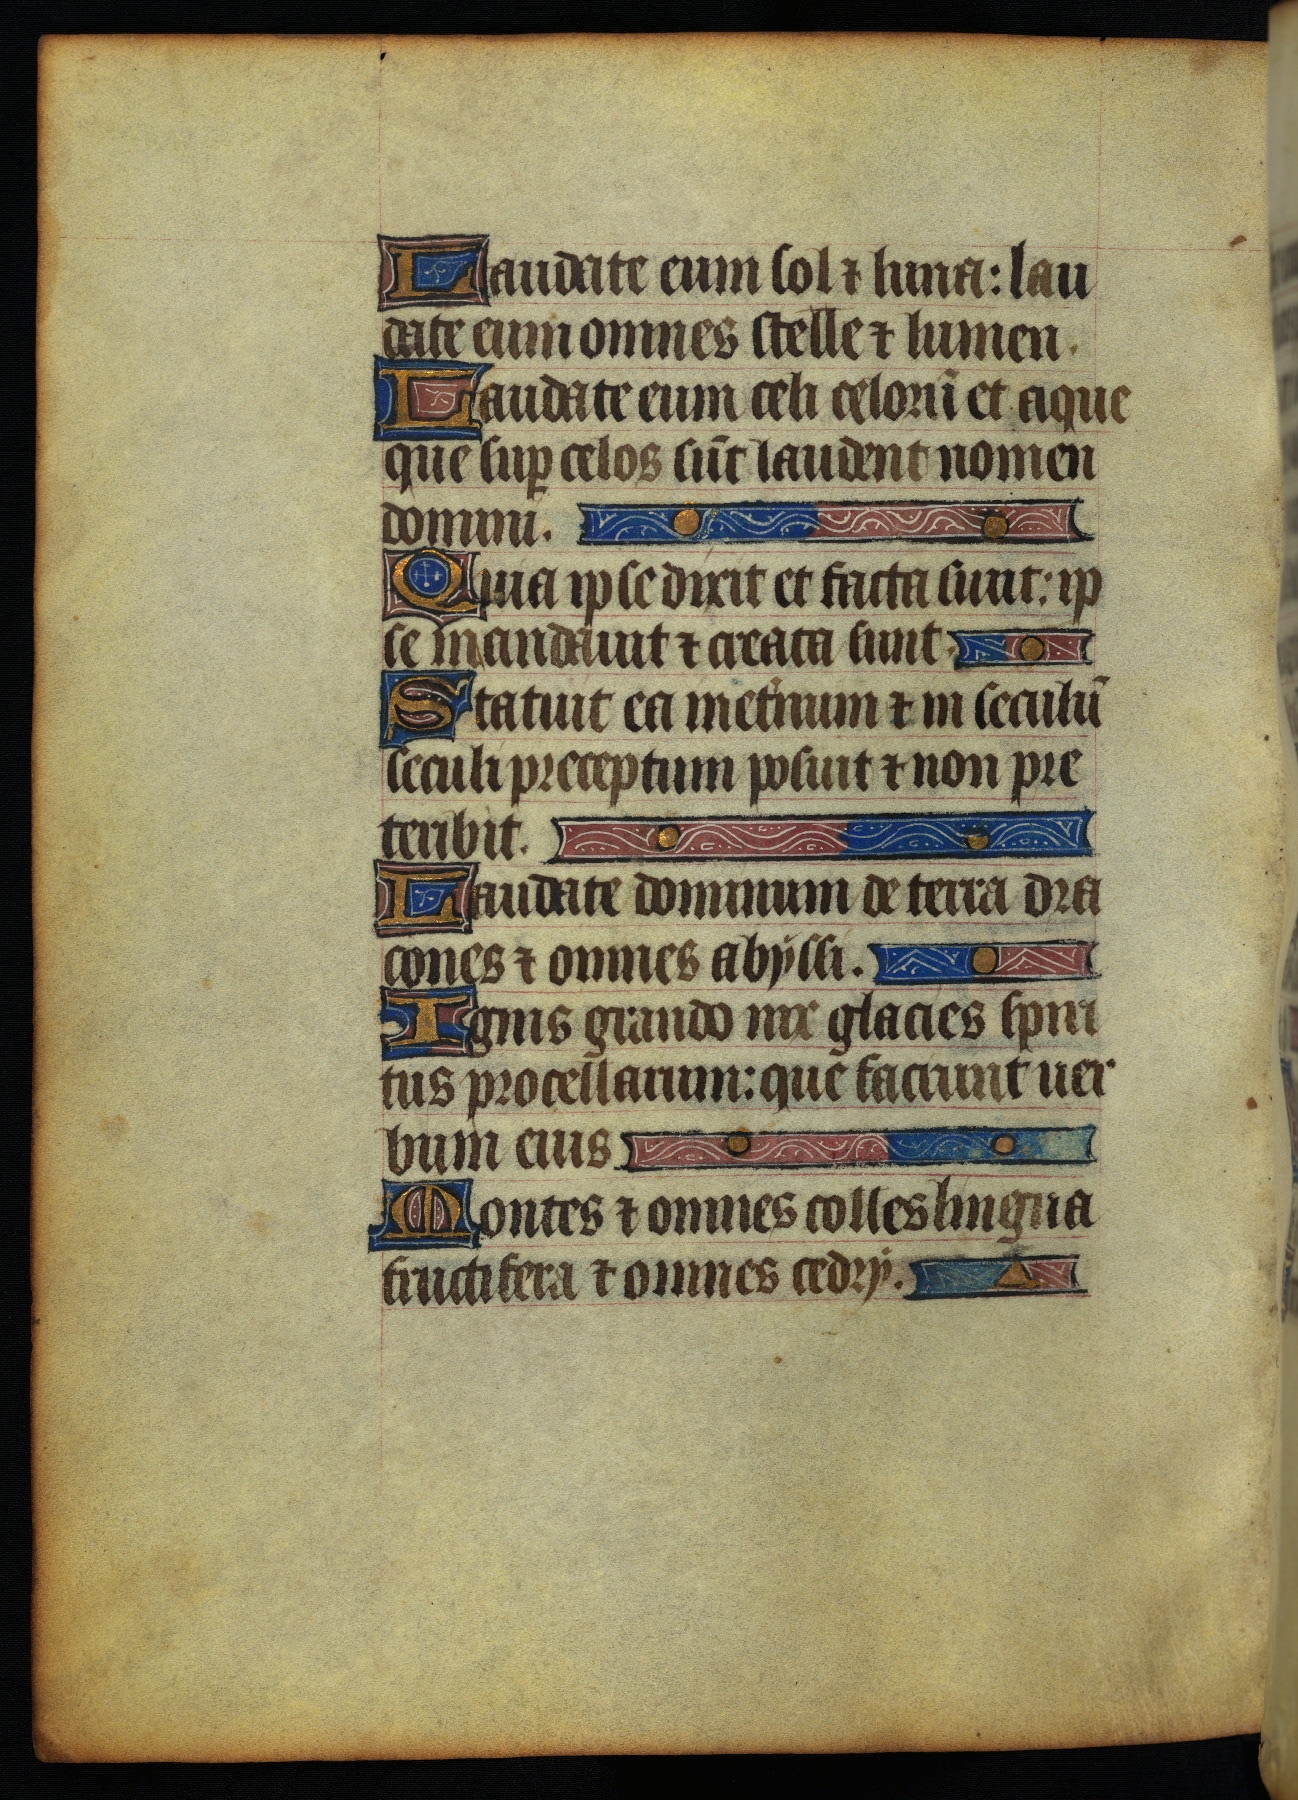 Laudate eum sol ⁊ luna: lau
date eum omnes stelle ⁊ lumen.
Laudate eum celi celorū et aque
que suꝑ celos sūt laudent nomen
domini.
Quia ipse dixit et facta sunt: ip
se mandauit ⁊ creata sunt.
Statuit ea inet̾num ⁊ in seculū
seculi preceptum posuit ⁊ non pre
teribit.
Laudate dominum de terra dra
cones ⁊ omnes abẏssi.
Ignis grando nix glacies spiri
tus procellarum: que faciunt uer
bum eius
Montes ⁊ omnes colles lingna
fructifera ⁊ omnes cedrẏ.